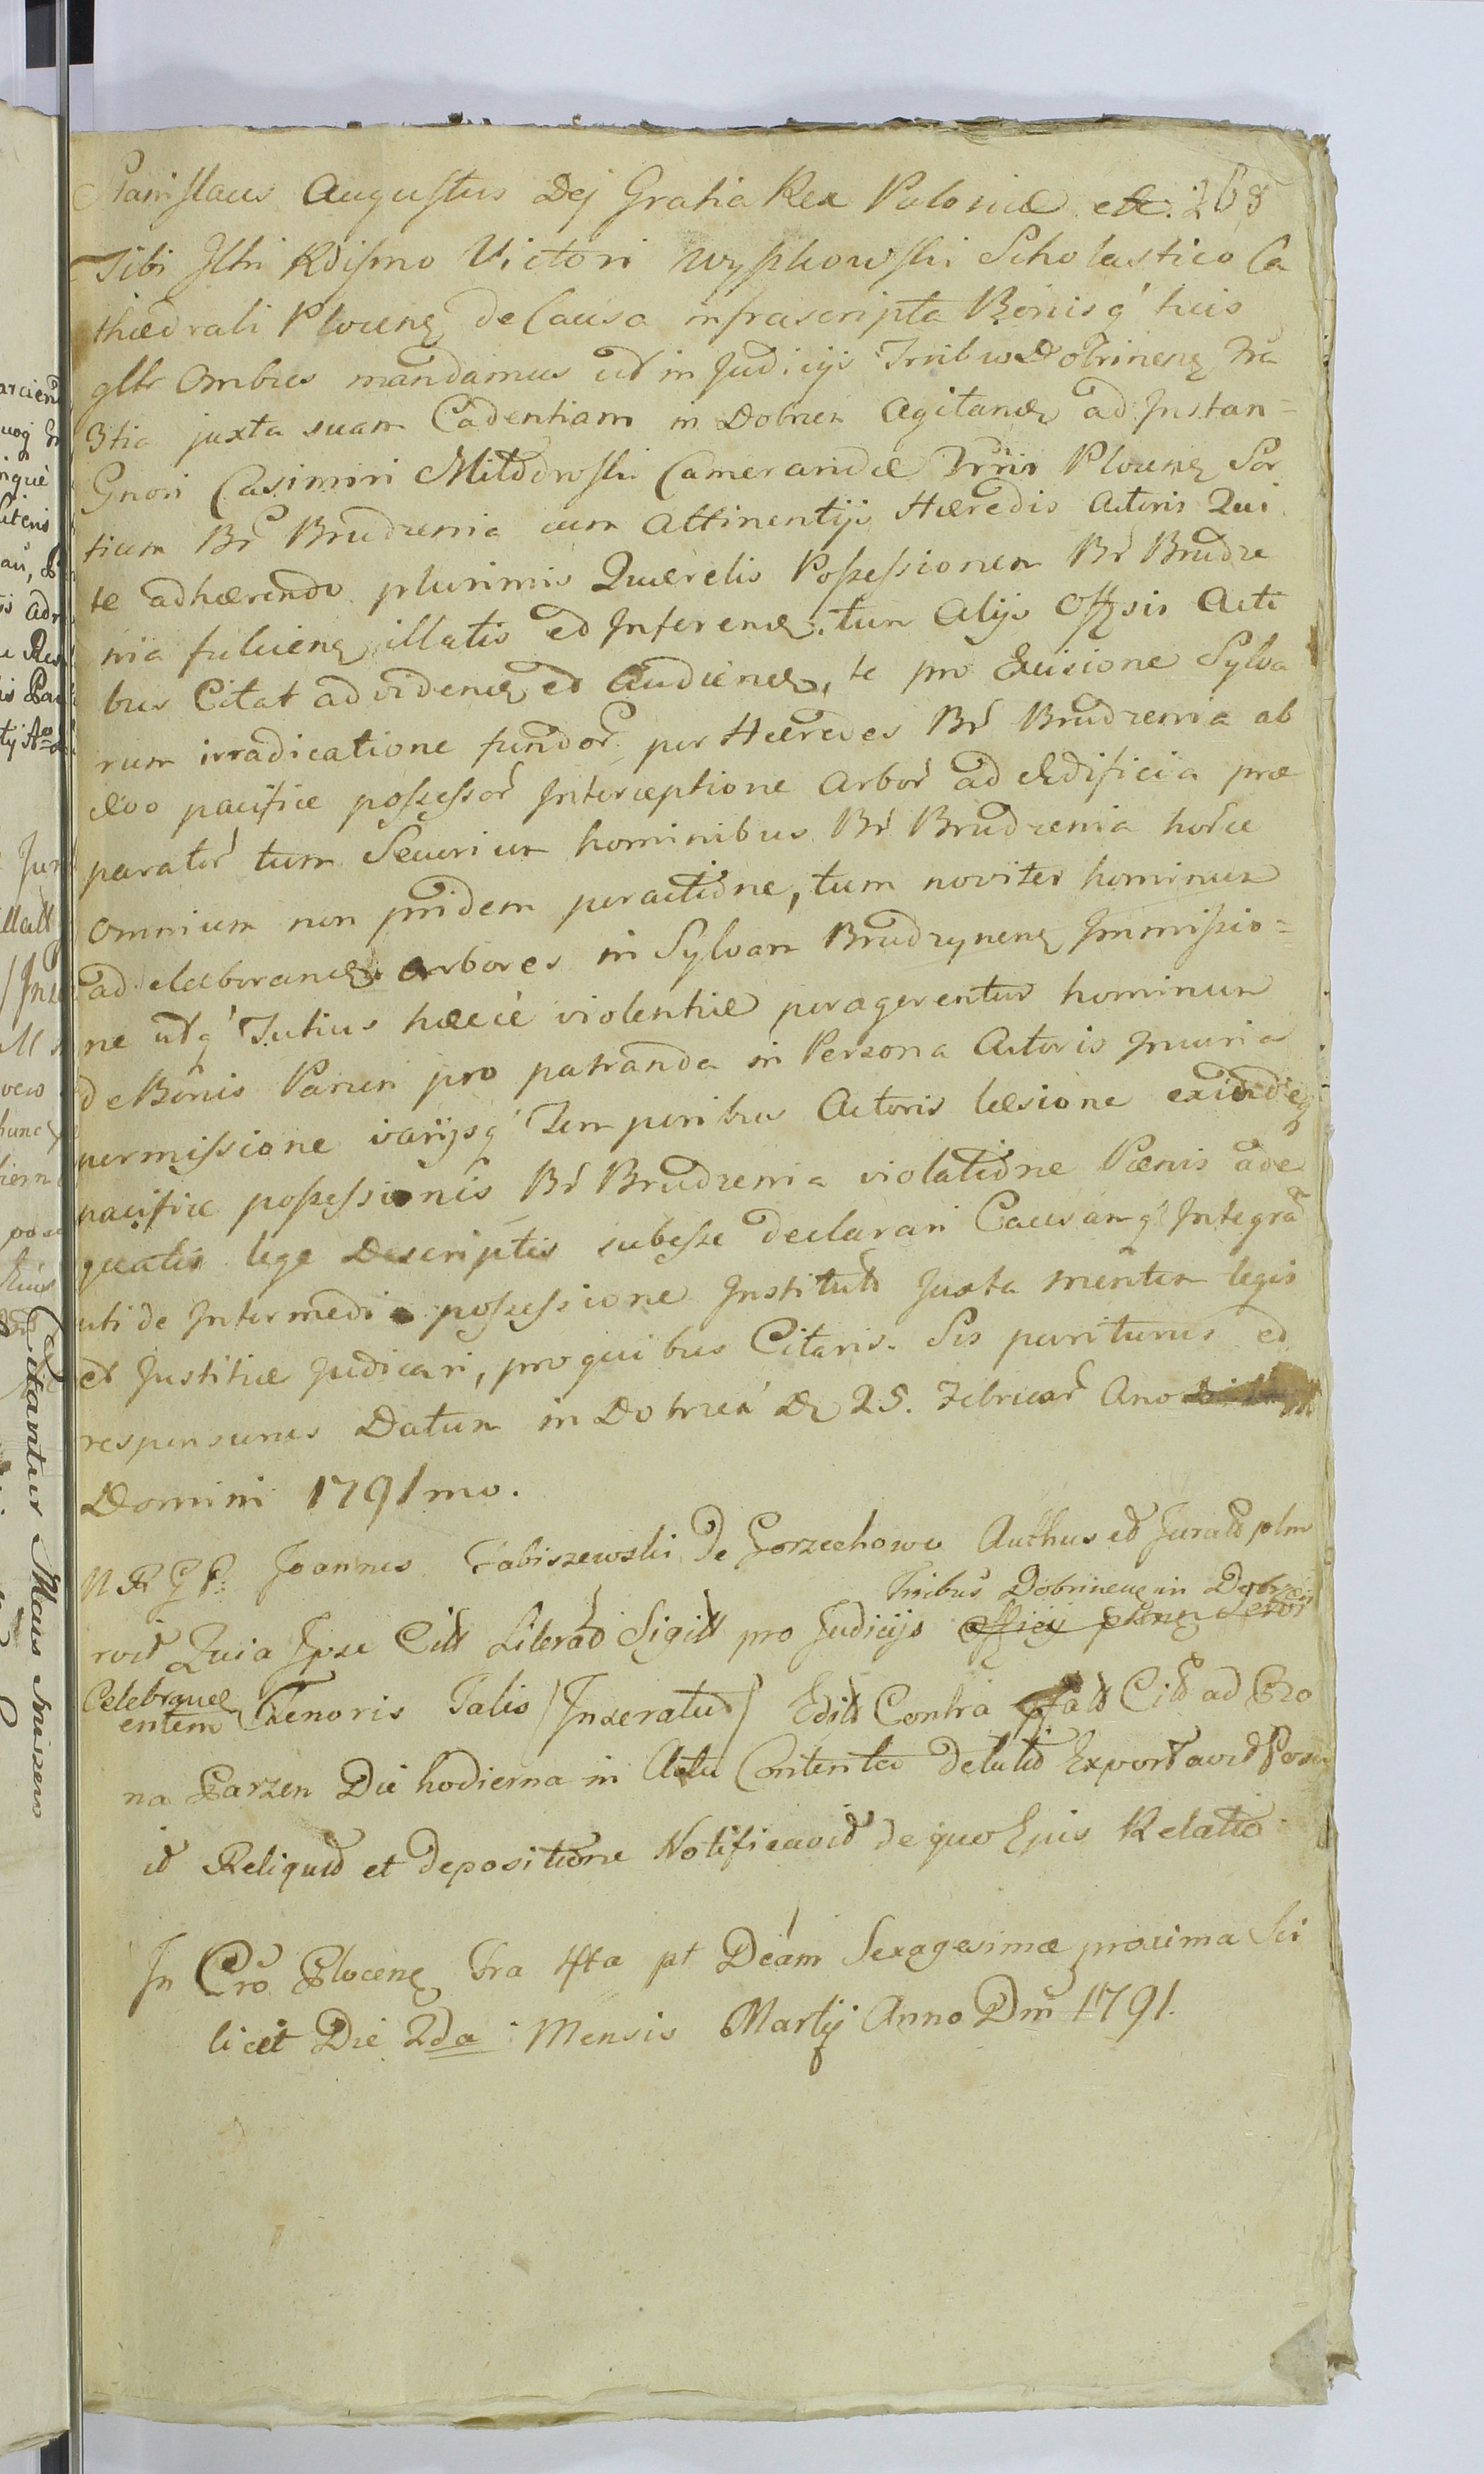 Stanislaus Augustus Dej Gratia Rex Poloniæ etc. 268
Tibi Jltri Rdissmo Victori Wyszkowski Scholastico Ca
thædrali Plocens de Causa infrascripta Bonisq' tuis
gltr Ombus mandamus ut in Judicijs Trribus Dobrinens Fra
3tia juxta suam Cadentiam in Dobrzn Agitand ad Instan=
Gnosi Casimiri Cameraridæ Trris Plocens Sor
tium Br Brudzenia cum Attinentijs Hæredis Actoris Qui
te adhærendo plurimis Quærelis Possessionem Br Brudze
nia illatis et Inferend, tum Alijs Offsis Acti
bus Citat ad vidend et Audiend, te pro Excisione Sylva
rum irradicatione fundor per Hæredes Br Brudzenia ab
ævo pacifice possessor Interceptione Arbor ad Ædificia præ
parator tum hominibus Br Brudzenia horce
omnium non pridem peractione, tum noviter hominum
ad elaborand arbores in Sylvam Brudzynens Immissio=
ne utq' Tutius hæcce violentiæ peragerentur hominum
de Bonis Parzen pro patranda in Persona Actoris Injuria
permissione varijsq' Temporibus Actoris læsione exindeq
pacificæ possessionis Br Brudzenia violatione Pænis adæ
quatis lege Descriptis subesse declarari Causamq' Integra
uti de Intermedia possessione Institut Juxta mentem legis
et Justitiæ Judicari, pro quibus Citaris. Sis pariturus et
responsurus Datum in Dobrzn D 25. Februar Ano
Domini 1791mo.
N R G P: Joannes Fabiszewski de Gorzechowo Authus et Jurat plm
Trribus Dobrinens in Dobrzn
vit Quia Ipse Citt Literat Sigilt pro Judicijs officij
Celebrand
entem Tenoris Talis /Inseratur/ Edit Contra Citt ad Bo
na Parzen Die hodierna in Actu Contento Detulit Exportavit Posu
it Reliquit et depositione Notificavit de quo Ejus Relatio
In Cro Plocens Fra 4ta pt Dcam Sexagesimæ proxima Sci
licet Die 2da Mensis Martij Anno Dni 1791.
Citantur